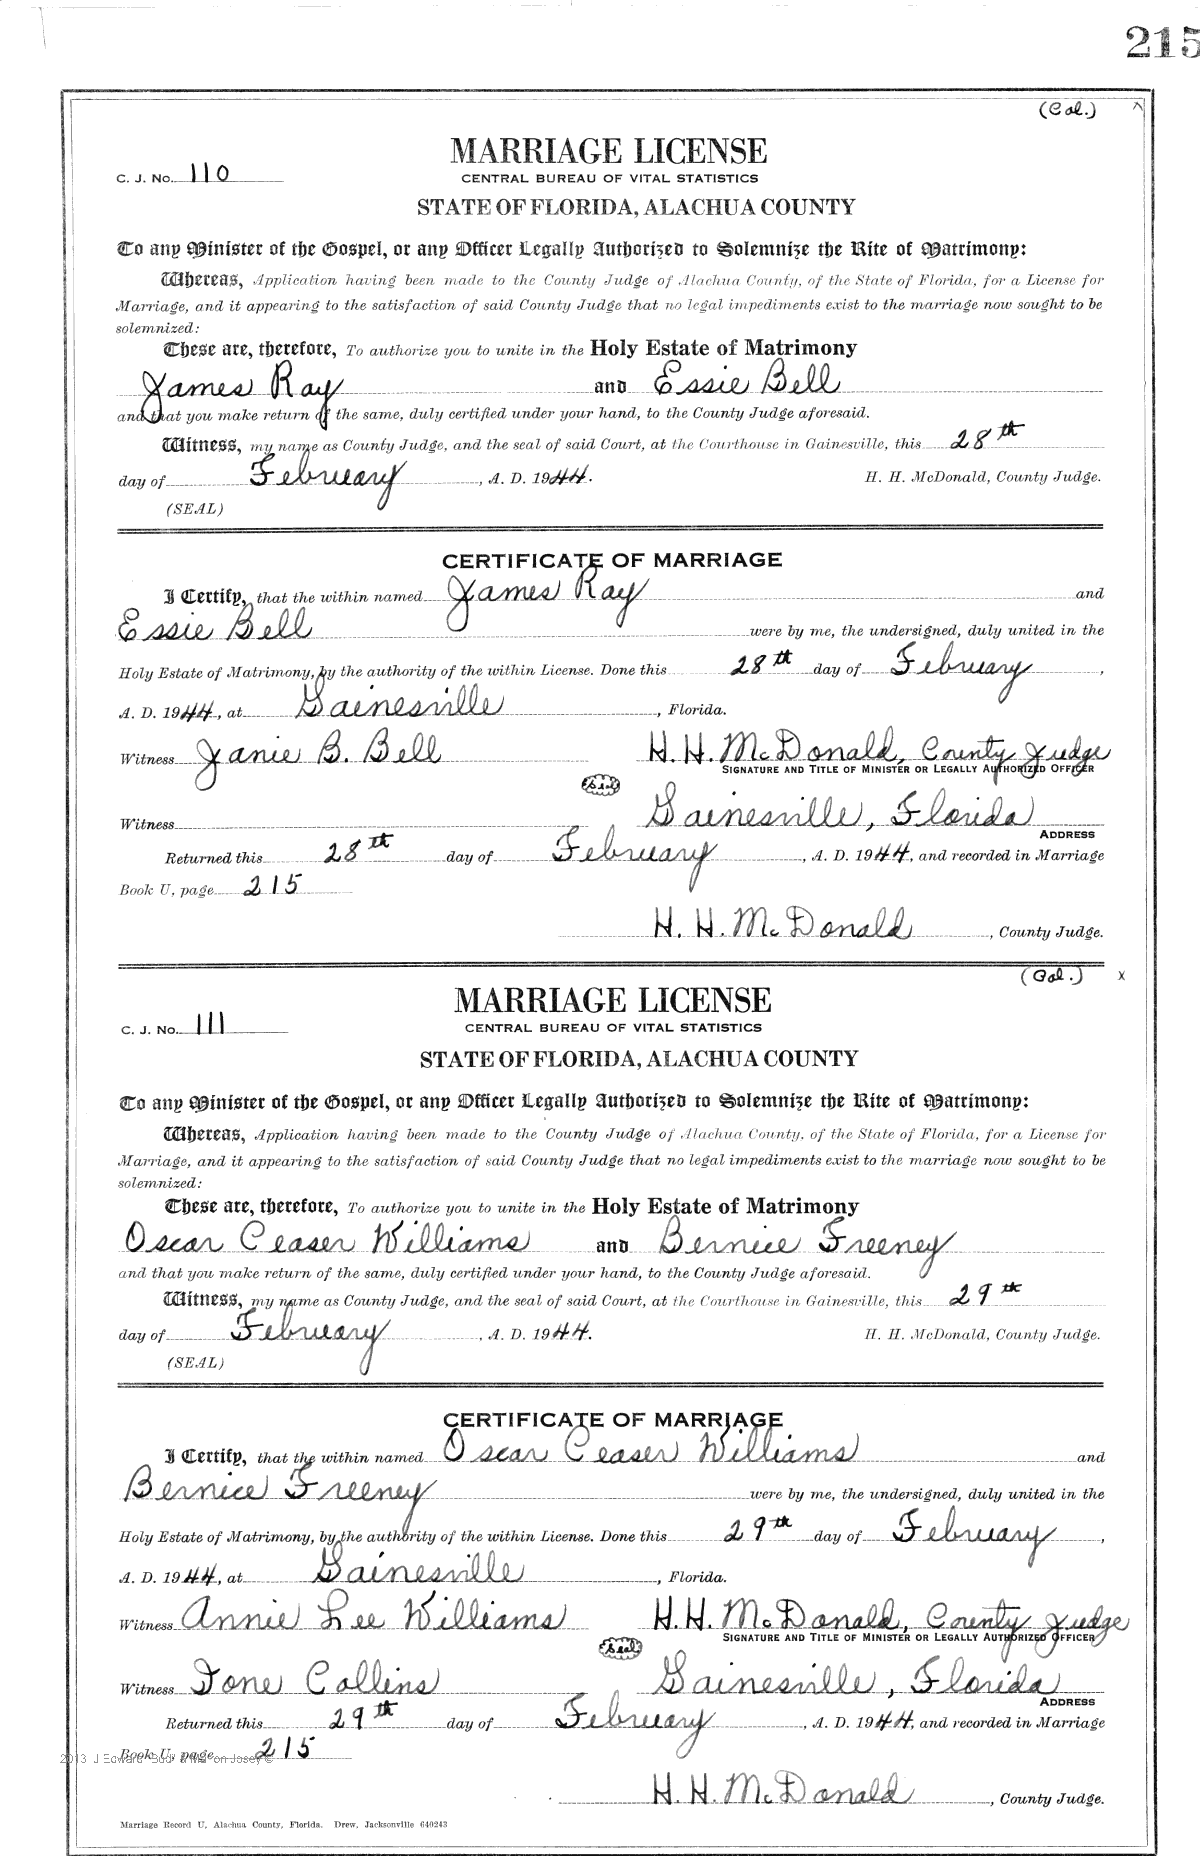 215
(Col.)
MARRIAGE LICENSE
C. J. No. 110
CENTRAL BUREAU OF VITAL STATISTICS
STATE OF FLORIDA, ALACHUA COUNTY
To any Minister of the Gospel, or any Officer Legally Authorized to Solemnize the Rite of Matrimony:
Whereas, Application having been made to the County Judge of Alachua County, of the State of Florida, for a License for
Marriage, and it appearing to the satisfaction of said County Judge that no legal impediments exist to the marriage now sought to be
solemnized:
These are, therefore, To authorize you to unite in the Holy Estate of Matrimony
James Ray and Essie Bell
and that you make return of the same, duly certified under your hand, to the County Judge aforesaid.
Witness, my name as County Judge, and the seal of said Court, at the Courthouse in Gainesville, this 28th
day of February, A. D. 1944. H. H. McDonald, County Judge.
(SEAL)
CERTIFICATE OF MARRIAGE
I Certify, that the within named James Ray and
Essie Bell were by me, the undersigned, duly united in the
Holy Estate of Matrimony, by the authority of the within License. Done this 28th day of February,
A. D. 1944, at Gainesville, Florida.
Witness Janie B. Bell H. H. McDonald, County Judge
SIGNATURE AND TITLE OF MINISTER OR LEGALLY AUTHORIZED OFFICER
Seal
Witness Gainesville, Florida
ADDRESS
Returned this 28th day of February, A. D. 1944, and recorded in Marriage
Book U, page 215
H. H. McDonald, County Judge.
(Col.) x
MARRIAGE LICENSE
C. J. No. 111
CENTRAL BUREAU OF VITAL STATISTICS
STATE OF FLORIDA, ALACHUA COUNTY
To any Minister of the Gospel, or any Officer Legally Authorized to Solemnize the Rite of Matrimony:
Whereas, Application having been made to the County Judge of Alachua County, of the State of Florida, for a License for
Marriage, and it appearing to the satisfaction of said County Judge that no legal impediments exist to the marriage now sought to be
solemnized:
These are, therefore, To authorize you to unite in the Holy Estate of Matrimony
Oscar Ceaser Williams and Bernice Freeney
and that you make return of the same, duly certified under your hand, to the County Judge aforesaid.
Witness, my name as County Judge, and the seal of said Court, at the Courthouse in Gainesville, this 29th
day of February, A. D. 1944. H. H. McDonald, County Judge.
(SEAL)
CERTIFICATE OF MARRIAGE
I Certify, that the within named Oscar Ceaser Williams and
Bernice Freeney were by me, the undersigned, duly united in the
Holy Estate of Matrimony, by the authority of the within License. Done this 29th day of February,
A. D. 1944, at Gainesville, Florida.
Witness Annie Lee Williams H. H. McDonald, County Judge
SIGNATURE AND TITLE OF MINISTER OR LEGALLY AUTHORIZED OFFICER
Seal
Witness Ione Collins Gainesville, Florida
ADDRESS
Returned this 29th day of February, A. D. 1944, and recorded in Marriage
Book U, page 215
2013 J Edward
H. H. McDonald, County Judge.
Marriage Record U, Alachua County, Florida. Drew, Jacksonville 640243